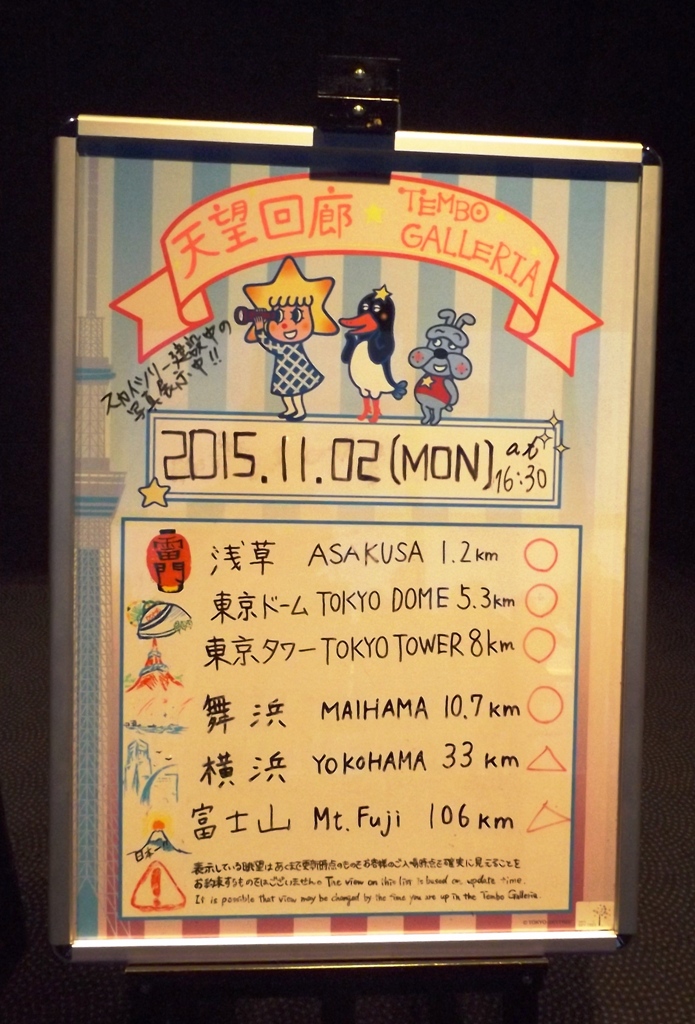 天望回廊 TEMBO
GALLERIA
スカイツリー建設中の
写真展示中!!
2015.11.02(MON) at
16:30
雷門
浅草 ASAKUSA 1.2km ○
東京ドーム TOKYO DOME 5.3km ○
東京タワー TOKYO TOWER 8km ○
舞浜 MAIHAMA 10.7km ○
横浜 YOKOHAMA 33km △
富士山 Mt.Fuji 106km △
日本一
表示している眺望はあくまで更新時点のものでお客様のご入場時点で確実に見えることを
お約束するものではございません。The view on this list is based on update time.
It is possible that view may be changed by the time you are up in the Tembo Galleria.